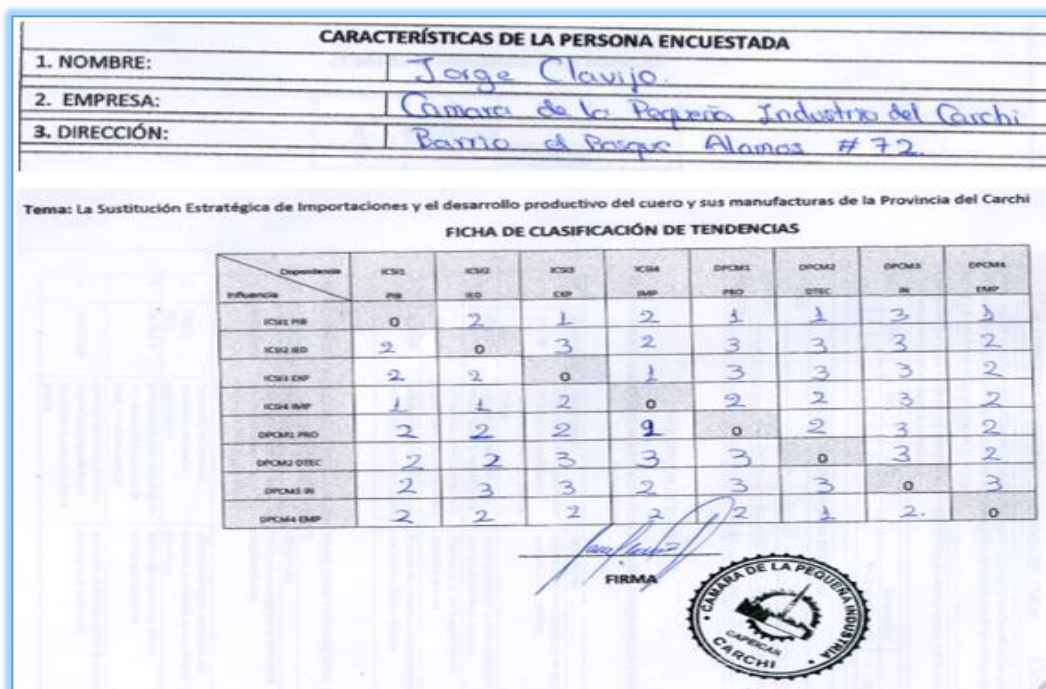 CARACTERÍSTICAS DE LA PERSONA ENCUESTADA
1. NOMBRE: Jorge Clavijo.
2. EMPRESA: Cámara de la Pequeña Industria del Carchi
3. DIRECCIÓN: Barrio el Bosque Alamos # 72.
Tema: La Sustitución Estratégica de Importaciones y el desarrollo productivo del cuero y sus manufacturas de la Provincia del Carchi
FICHA DE CLASIFICACIÓN DE TENDENCIAS
Dependencia ICSI1 ICSI2 ICSI3 ICSI4 DPCM1 DPCM2 DPCM3 DPCM4
Influencia PIB IED EXP IMP PRO DTEC IN EMP
ICSI1 PIB 0 2 1 2 1 1 3 1
ICSI2 IED 2 0 3 2 3 3 3 2
ICSI3 EXP 2 2 0 1 3 3 3 2
ICSI4 IMP 1 1 2 0 2 2 3 2
DPCM1 PRO 2 2 2 0 2 3 2
DPCM2 DTEC 2 2 3 3 3 0 3 2
DPCM3 IN 2 3 3 2 3 3 0 3
DPCM4 EMP 2 2 2 2 2 1 2. 0
FIRMA
CÁMARA DE LA PEQUEÑA INDUSTRIA
CAPEICAN
CARCHI